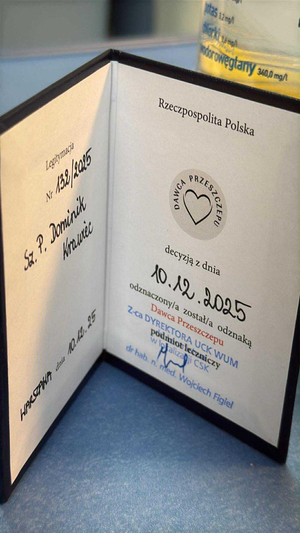 potas 3,2 mg/l
chlorki 3,2 mg/l
wodorowęglany 340,0 mg/l
Legitymacja
Nr 138/2025
Sz. P. Dominik
Krawiec
WARSZAWA dnia 10.12.25
Rzeczpospolita Polska
DAWCA PRZESZCZEPU
decyzją z dnia
10.12.2025
odznaczony/a został/a odznaką
Dawca Przeszczepu
Z-ca DYREKTORA UCK WUM
w lokalizacji CSK
podmiot leczniczy
dr hab. n. med. Wojciech Figiel